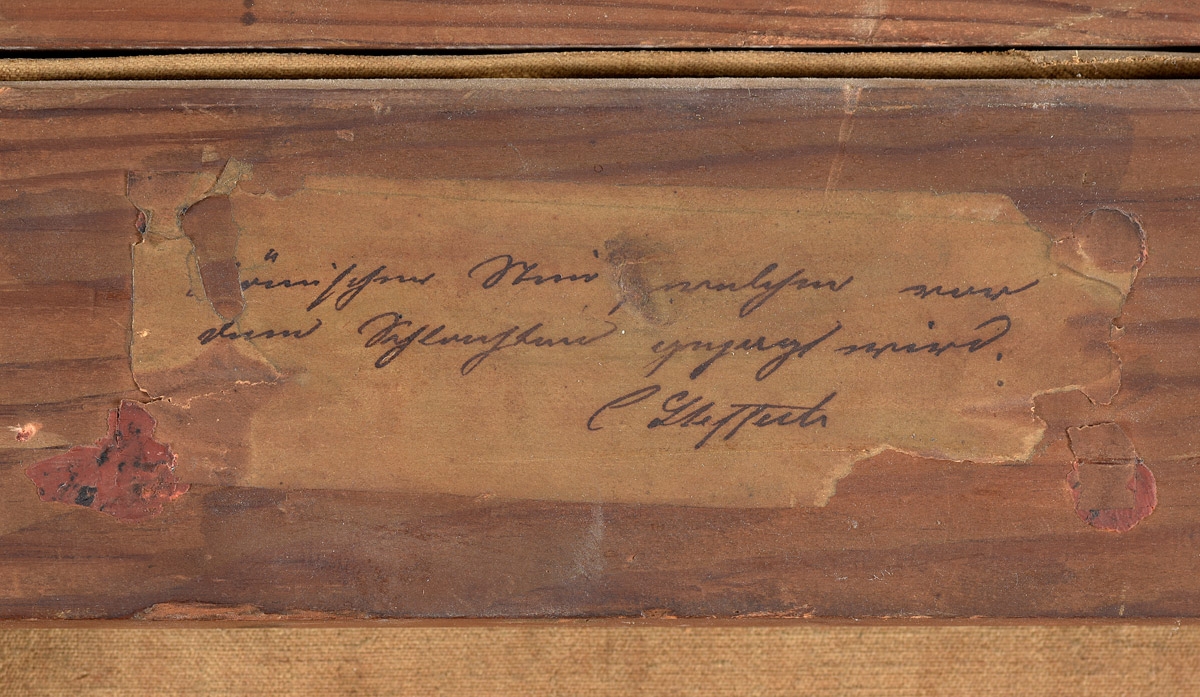 ömischer Stier, welcher vor
dem Schlachten gejagt wird.
C Steffeck